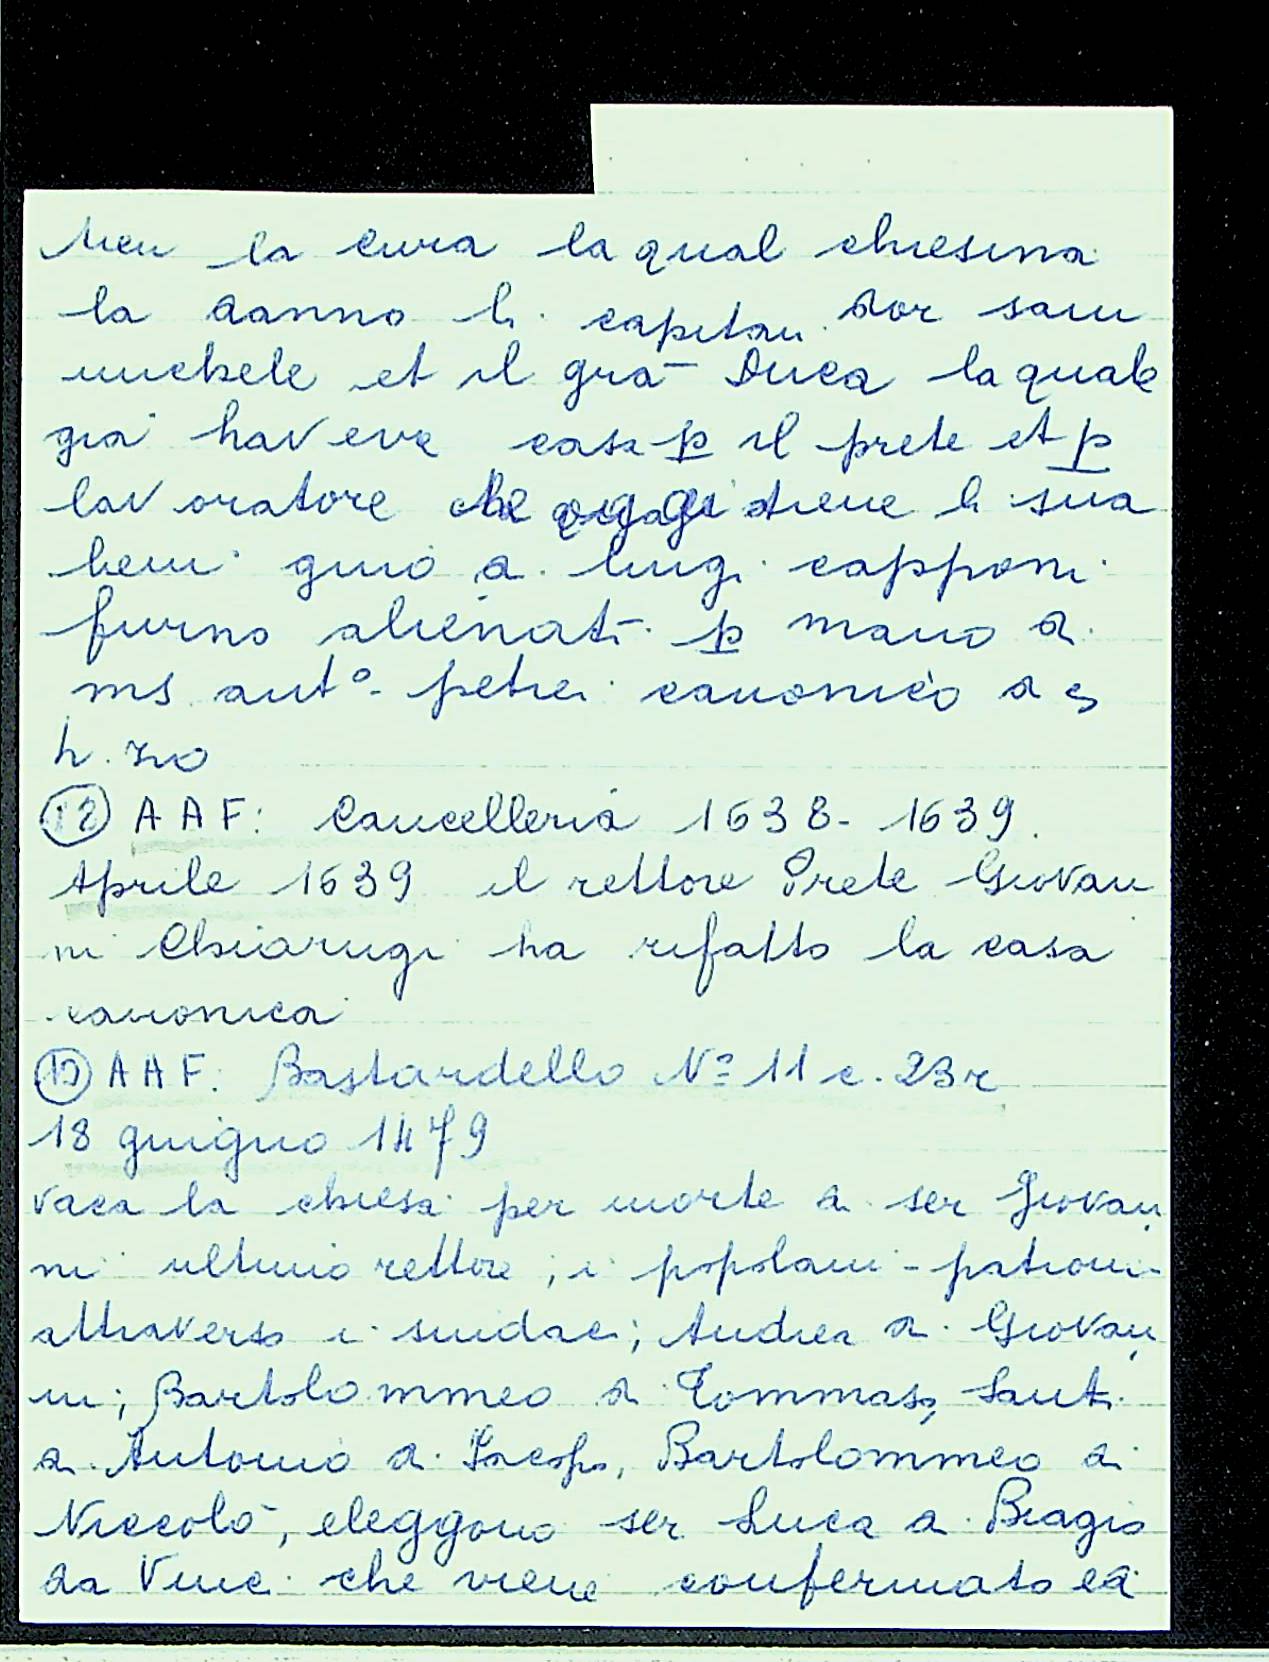 la cura la qual chiesina
la danno li capitan dor sam
michele et il gra- Duca la quale
gia haveve casa p il prete et p
lavoratore che oggi tiene li sua
beni guio di luigi capponi
furno alienati p mano di
ms ant° petrei canonico di s
(12) AAF: Cancelleria 1638-1639.
Aprile 1639 il rettore Prete Giovan
ni Chiarugi ha rifatto la casa
canonica
AAF: Bastardello N° 11 c. 23r
18 giugno 1479
vaca la chiesa per morte di ser Giovan
ni ultimo rettore; i popolani-patroni
attraverso i sindaci; Andrea di Giovan
ni; Bartolommeo di Tommaso, Santi
di Antonio di Iacopo, Bartolommeo di
Niccolò, eleggono ser Luca di Biagio
da Vinci che viene confermato ed